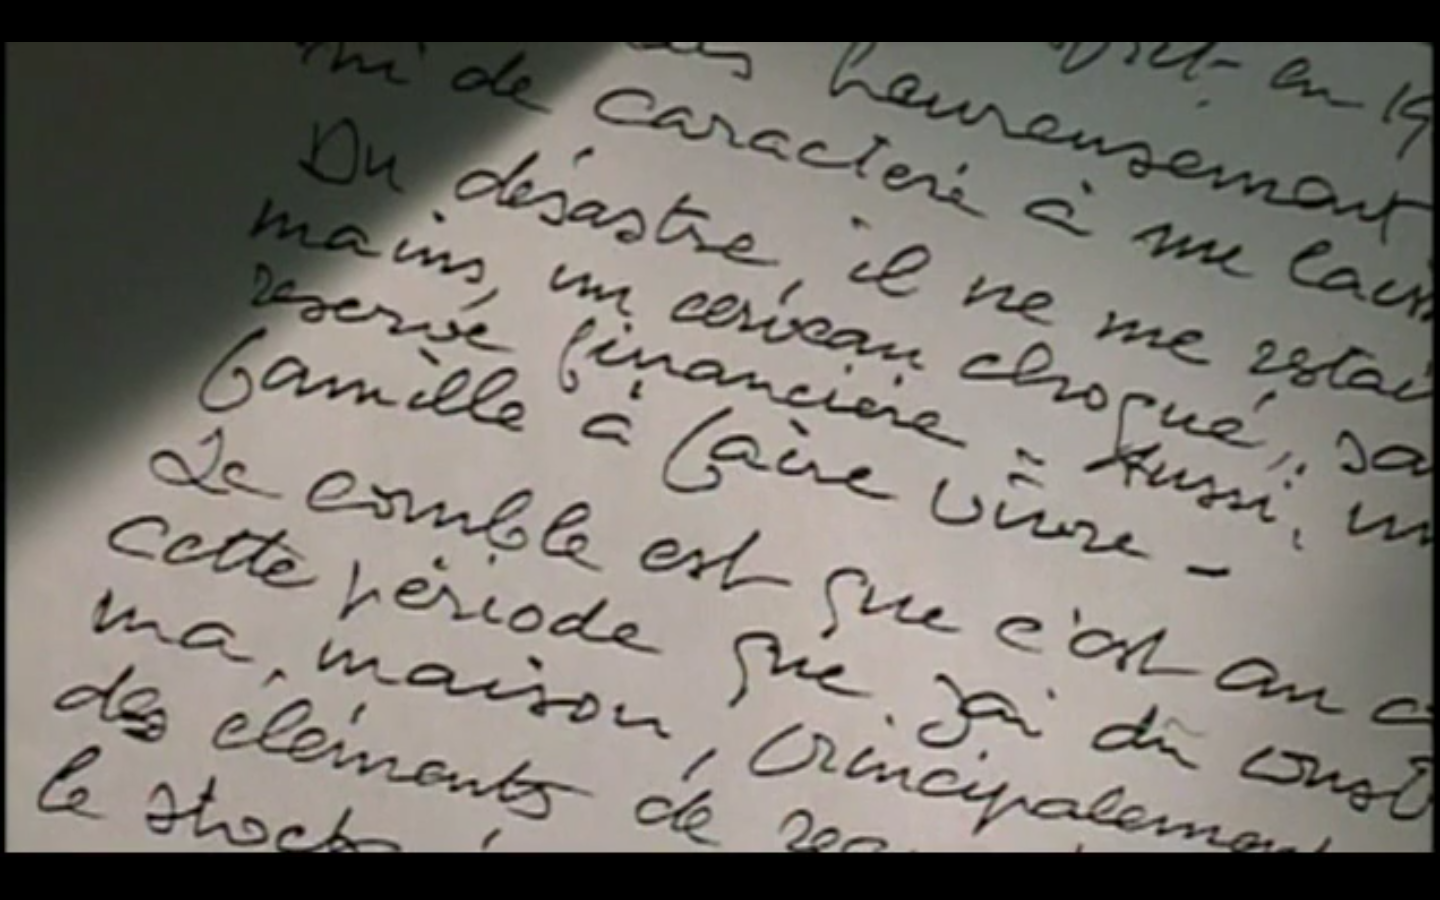 en 19
heureusement
ni de caractère à me laiss
Du désastre, il ne me restai
mains, un cerveau choqué, sa
reserve financière - Aussi, un
famille à faire vivre -
Le comble est que c'est au c
cette période que j'ai dû const
ma maison, principalement
des éléments de
le stock